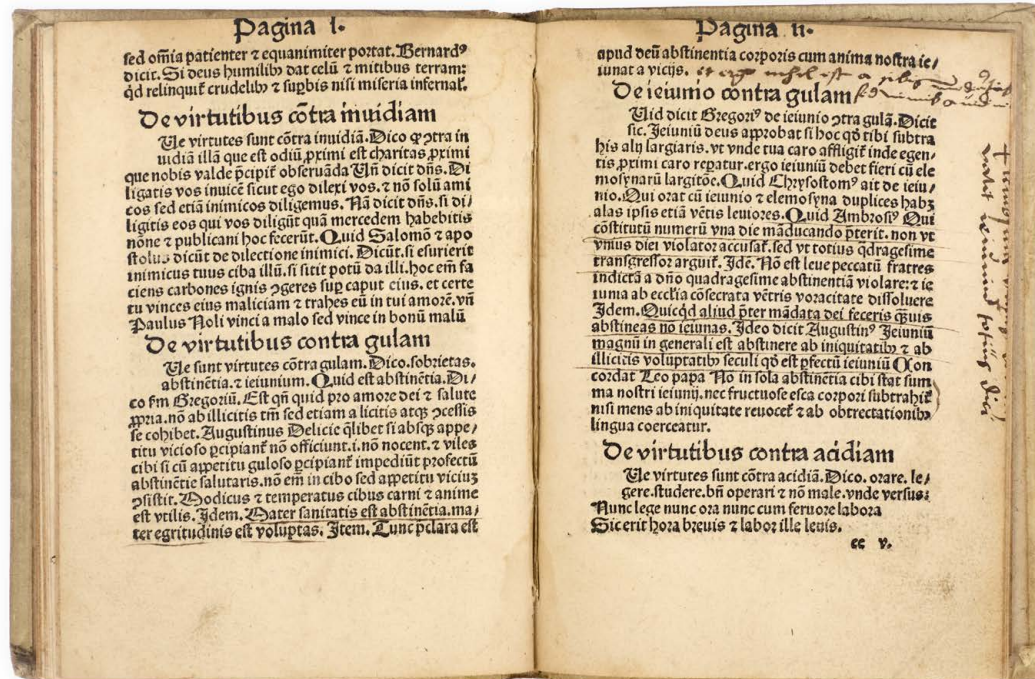 Pagina l.
sed om̄ia patienter ⁊ equanimiter portat. Bernardꝰ
dicit. Si deus humilibꝫ dat celū ⁊ mitibus terram:
qd̓ relinquit̃ crudelibꝫ ⁊ suꝑbis nisi miseria infernal̓.
De virtutibus cōtra inuidiam
Ue virtutes sunt cōtra inuidiā. Dico ꝙ ꝯtra in
uidiā illā que est odiū ꝓximi est charitas ꝓximi
que nobis valde p̄cipit̃ obseruāda Un̄ dicit dn̄s. Di
ligatis vos inuicē sicut ego dilexi vos. ⁊ nō solū ami
cos sed etiā inimicos diligemus. Nā dicit dn̄s. si di/
ligitis eos qui vos diligūt quā mercedem habebitis
nōne ⁊ publicani hoc fecerūt. Quid Salomō ⁊ apo
stolus dicūt de dilectione inimici. Dicūt. si esurierit
inimicus tuus ciba illū. si sitit potū da illi. hoc em̄ fa
ciens carbones ignis ꝯgeres suꝑ caput eius. et certe
tu vinces eius maliciam ⁊ trahes eū in tui amorē. vn̄
Paulus Noli vinci a malo sed vince in bonū malū
De virtutibus contra gulam
Ue sunt virtutes cōtra gulam. Dico. sobrietas.
abstinētia. ⁊ ieiunium. Quid est abstinētia. Di/
co fm̄ Gregoriū. Est qn̄ quid pro amore dei ⁊ salute
ꝓpria. nō ab illicitis tm̄ sed etiam a licitis atqꝫ ꝯcessis
se cohibet. Augustinus Delicie q̄libet si absqꝫ appe/
titu vicioso ꝑcipiant̃ nō officiunt. i. nō nocent. ⁊ viles
cibi si cū appetitu guloso ꝑcipiant̃ impediūt profectū
abstinētie salutaris. nō em̄ in cibo sed appetitu viciuꝫ
ꝯsistit. Modicus ⁊ temperatus cibus carni ⁊ anime
est vtilis. Idem. Mater sanitatis est abstinētia. ma/
ter egritudinis est voluptas. Item. Tunc p̄clara est
Pagina ii.
apud deū abstinentia corporis cum anima nostra ie/
iunat a vicijs. et ergo nihil est a cibis
De ieiunio contra gulam
Uid dicit Gregoriꝰ de ieiunio ꝯtra gulā. Dicit
sic. Ieiuniū deus approbat si hoc qd̓ tibi subtra
his alij largiaris. vt vnde tua caro affligit̃ inde egen/
tis ꝓximi caro reꝑatur. ergo ieiuniū debet fieri cū ele
mosynarū largitōe. Quid Chrysostomꝰ ait de ieiu/
nio. Qui orat cū ieiunio ⁊ elemosyna duplices habꝫ
alas ipsis etiā vētis leuiores. Quid Ambrosiꝰ Qui
cōstitutū numerū vna die māducando p̄terit. non vt
vnius diei violator accusat̃. sed vt totius q̄dragesime
transgressor arguit̃. Idē. Nō est leue peccatū fratres
indictā a dn̄o quadragesime abstinentiā violare: ⁊ ie
iunia ab ecclīa cōsecrata vētris voracitate dissoluere
Idem. Quicqd̓ aliud p̄ter mādata dei feceris q̄uis
abstineas nō ieiunas. Ideo dicit Augustinꝰ Ieiuniū
magnū in generali est abstinere ab iniquitatibꝫ ⁊ ab
illicitis voluptatibꝫ seculi qd̓ est ꝑfectū ieiuniū Con
cordat Leo papa Nō in sola abstinētia cibi stat sum
ma nostri ieiunij. nec fructuose esca corpori subtrahit̃
nisi mens ab iniquitate reuocet̃ ⁊ ab obtrectationibꝫ
lingua coerceatur.
De virtutibus contra acidiam
Ue virtutes sunt cōtra acidiā. Dico. orare. le/
gere. studere. bn̄ operari ⁊ nō male. vnde versus:
Nunc lege nunc ora nunc cum feruore labora
Sic erit hora breuis ⁊ labor ille leuis.
cc v.